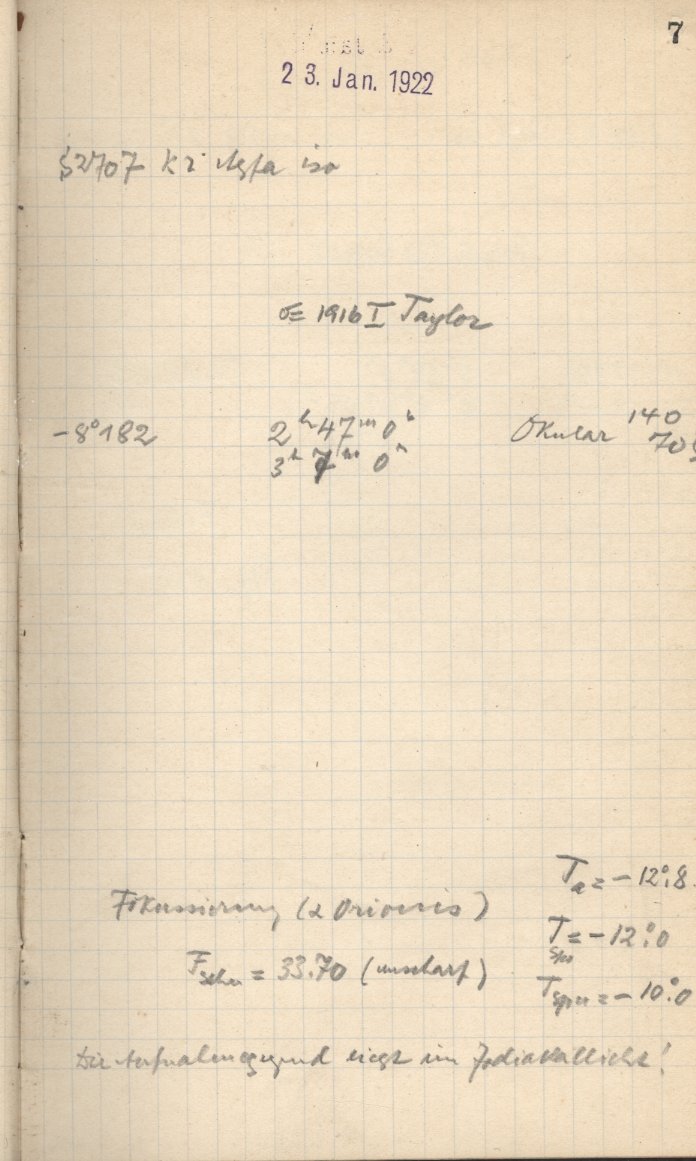 7
23. Jan. 1922
S2707 K2 Agfa iso
σ= 1916 I Taylor
-8°182 2ʰ47ᵐ0ˢ Okular 140
3ʰ 7ᵐ 0ˢ 70
Fokussierung (α Orionis) Tₐ = -12°.8
T = -12°.0
F = 33.70 (unscharf) T = -10°.0
Die Aufnahmegegend liegt im Zodiakallicht!